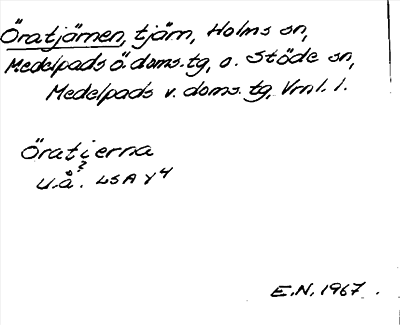 Öratjärnen, tjärn, Holms sn,
Medelpads ö. doms. tg, o. Stöde sn,
Medelpads v. doms. tg, Vrnl. l.
Öratierna
?
U.å. LSA Y4
E.N. 1967.